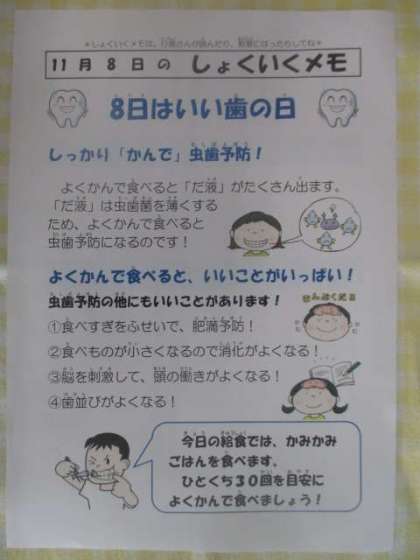 ＊しょくいくメモは、り員さんが読んだり、教室にはったりしてね＊
11月8日の しょくいくメモ
8日はいい歯の日
しっかり「かんで」虫歯予防！
よくかんで食べると「だ液」がたくさん出ます。
「だ液」は虫歯菌を薄くする
ため、よくかんで食べると
虫歯予防になるのです！
よくかんで食べると、いいことがいっぱい！
虫歯予防の他にもいいことがあります！
①食べすぎをふせいで、肥満予防！
②食べものが小さくなるので消化がよくなる！
③脳を刺激して、頭の働きがよくなる！
④歯並びがよくなる！
今日の給食では、かみかみ
ごはんを食べます。
ひとくち30回を目安に
よくかんで食べましょう！